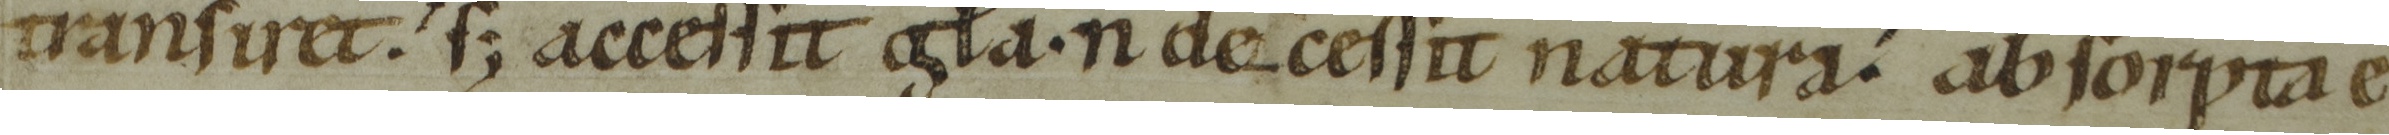 transiret. s; accessit gla. n decessit natura. absorpta e